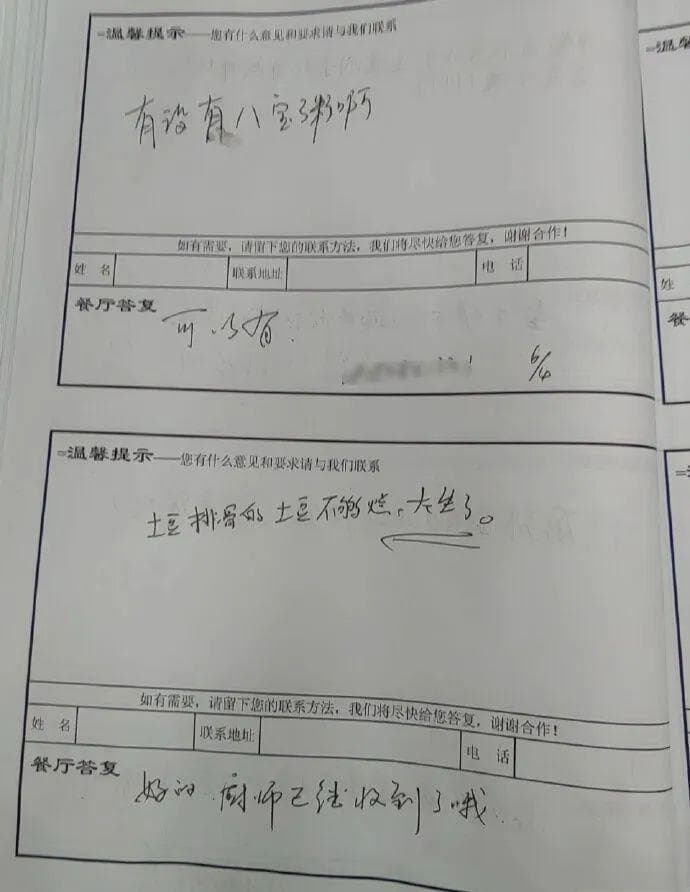 =温馨提示——您有什么意见和要求请与我们联系
有没有八宝粥啊
如有需要，请留下您的联系方法，我们将尽快给您答复，谢谢合作！
姓 名 联系地址 电 话
餐厅答复
可以有.
6/4
=温馨提示——您有什么意见和要求请与我们联系
土豆排骨的土豆不够烂，太生了。
如有需要，请留下您的联系方法，我们将尽快给您答复，谢谢合作！
姓 名 联系地址 电 话
餐厅答复
好的 厨师已经收到了哦